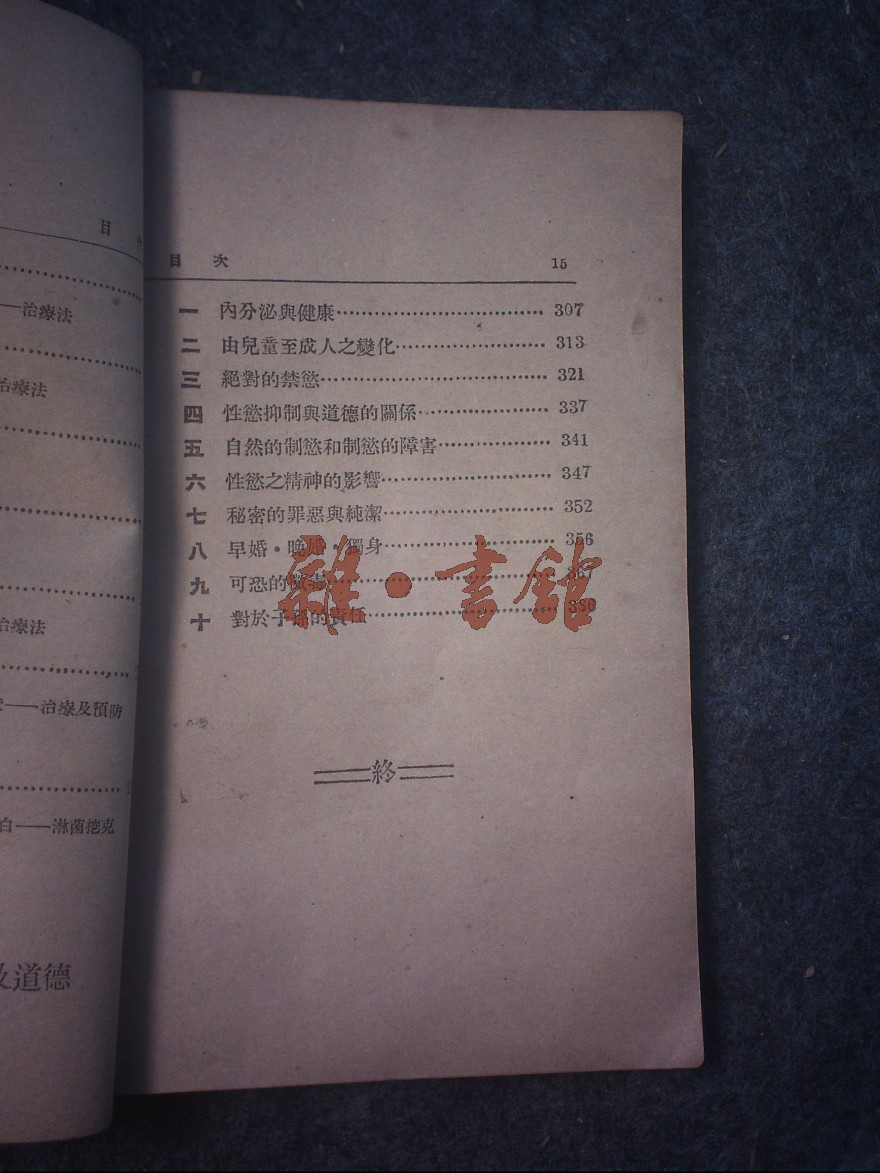 目
——治療法
治療法
治療法
——治療及預防
白——淋菌挖克
及道德
目 次 15
一 內分泌與健康 307
二 由兒童至成人之變化 313
三 絕對的禁慾 321
四 性慾抑制與道德的關係 337
五 自然的制慾和制慾的障害 341
六 性慾之精神的影響 347
七 秘密的罪惡與純潔 352
八 早婚·晚婚·獨身 356
九 可恐的 367
十 對於子孫的責任
終
雜·書館